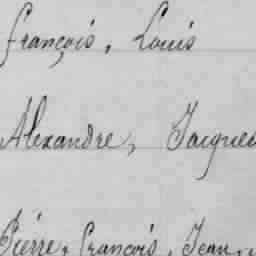 François, Louis
Alexandre, Jacques
Pierre, François, Jean,